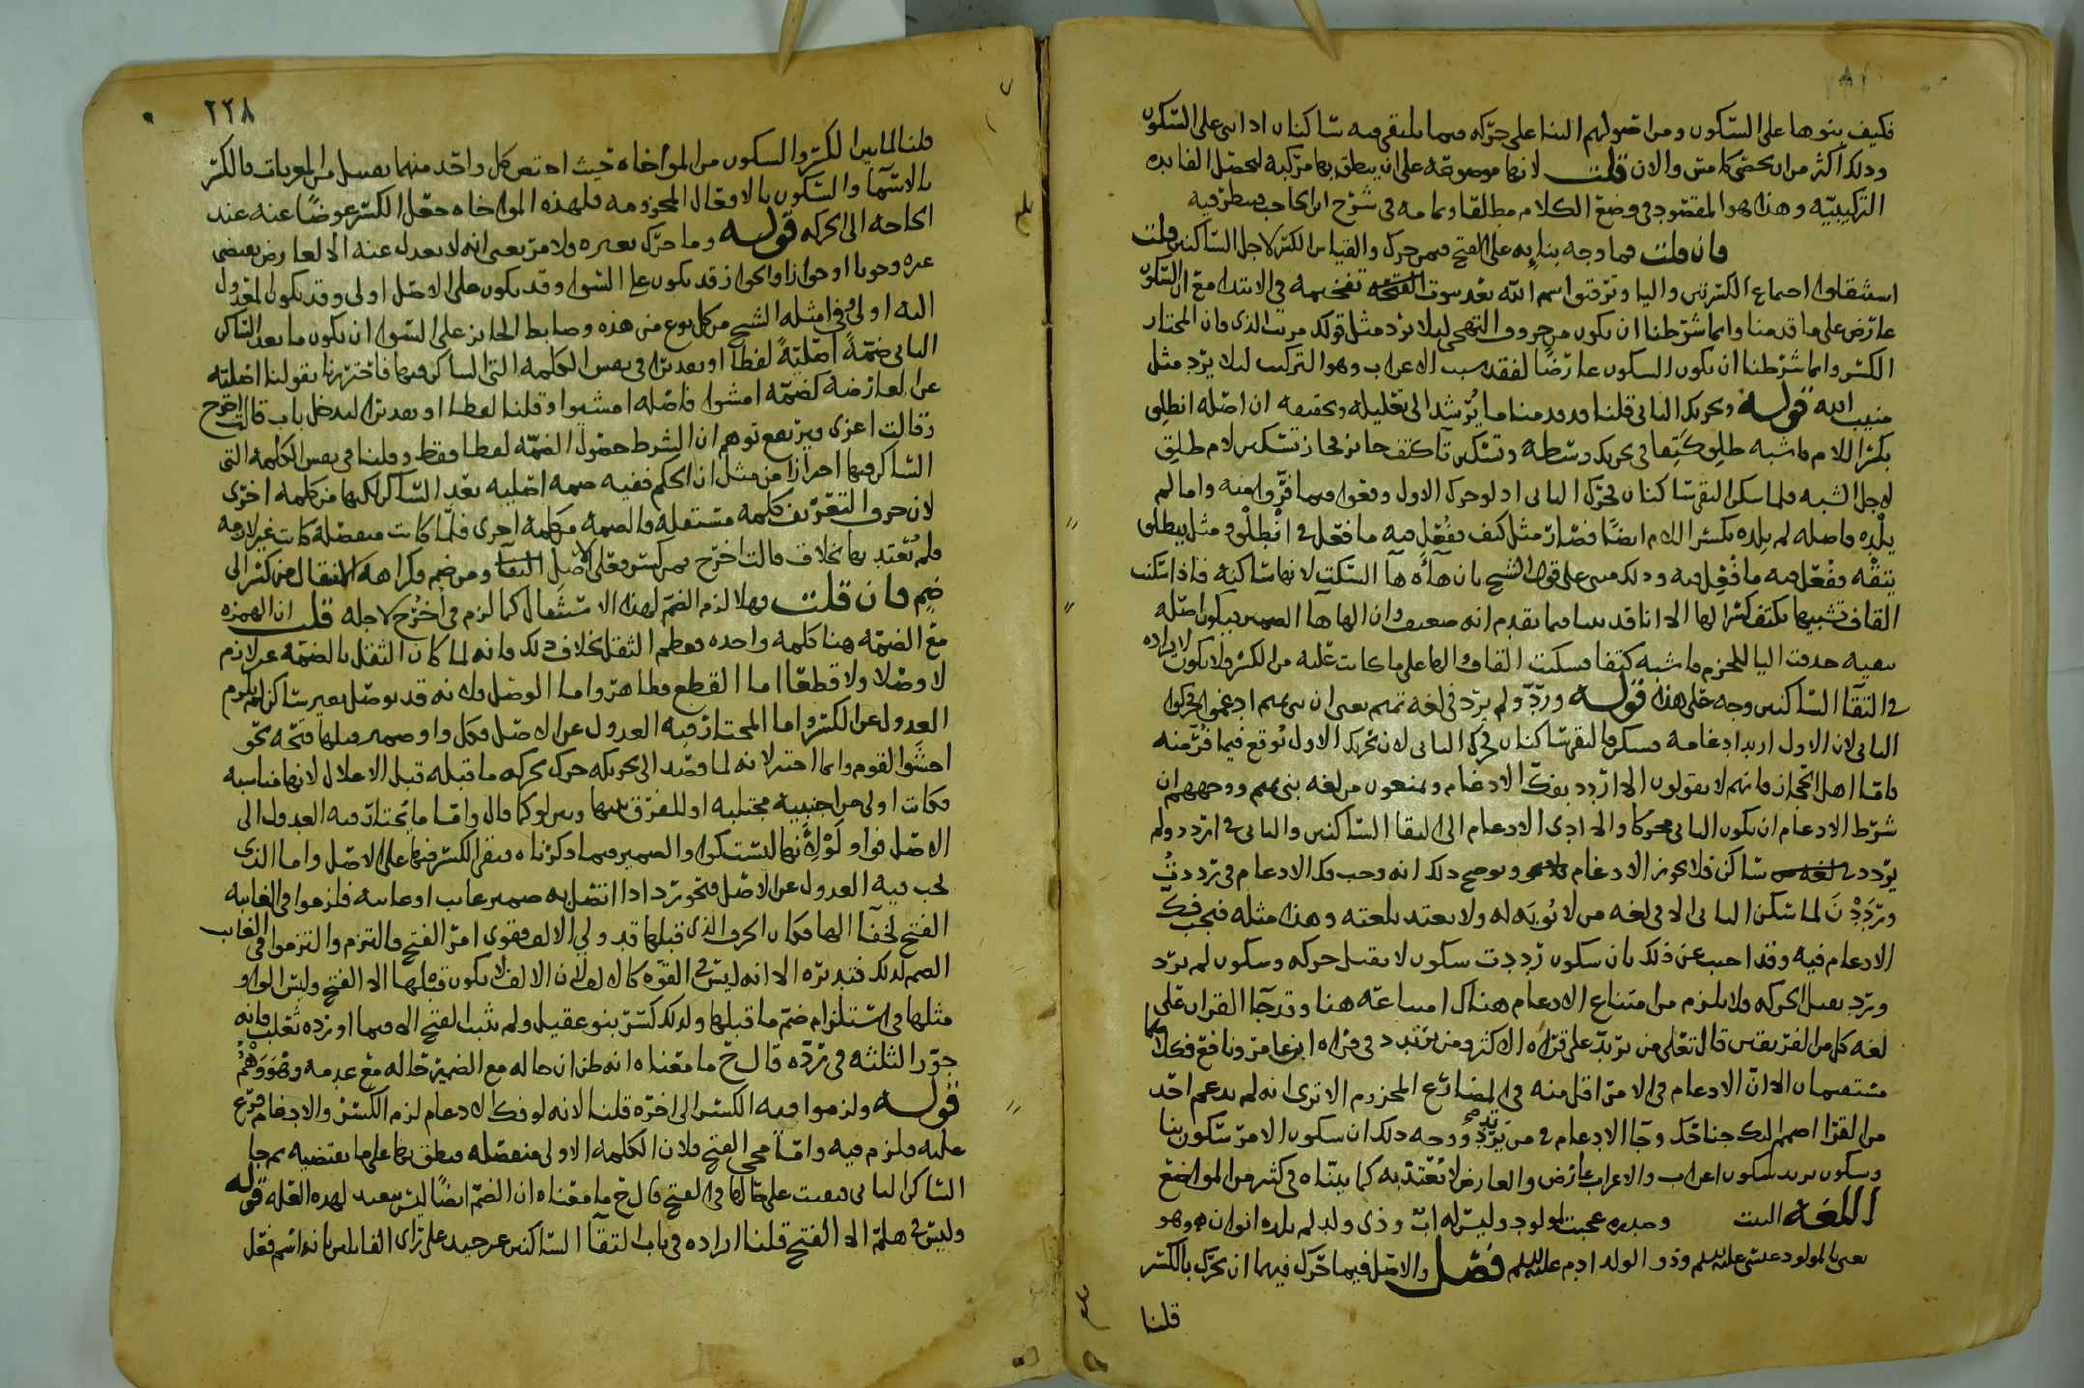 فكيف بنوها على السكون ومن اصولهم البنا على حركه فيما يلتقي فيه ساكنان اذا بني على السكون
وذلك اكثر من ان يحصى كامس والان قلت لانها موضوعه على ان ينطق بها مركبه لتحصل الفايده
التركيبيه وهذا هو المقصود في وضع الكلام مطلقا وتمامه في شرح ابن الحاجب فينظر فيه
فان قلت فما وجه بنايه على الفتح فيمن حرك والقياس الكسر لاجل الساكنين قلت
استثقلوا اجتماع الكسرتين واليا وتوقوا اسم الله بعد سوت الفتحه تفخيمه في الابتدا مع ان السكون
عارض على ما قدمنا وانما شرطنا ان يكون من حروف التهجي ليلا يرد مثل قولك مررت الذي فان المختار
الكسر وانما شرطنا ان يكون السكون عارضا لفقد سبب الاعراب وهو التركيب ليلا يرد مثل
منيب الله قوله وتحريك الثاني قلنا قد قدمنا ما يرشد الى تعليله وتحقيقه ان اصله انطلق
بكسر اللام فاشبه طلق كتفا في تحريك وسطه وتسكين تا كتف جايز فجاز تسكين لام طلق
لاجل الشبه فلما سكن التقى ساكنان فحرك الثاني اذ لو حرك الاول وقعوا فيما فروا منه واما لم
يلده فاصله لم يلده بكسر اللام ايضا فصار مثل كتف ففعل فيه ما فعل في انطلق ومثل ينطلق
يتقه ففعل فيه ما فعل فيه وذلك مبني على قول الشيخ بان هاه ها السكت لانها ساكنه فاذا سكنت
القاف تشبيها بكتف كسر لها الا انا قد بينا فيما تقدم انه ضعيف وان الها ها الضمير فيكون اصله
يتقيه حذفت اليا للجزم فاشبه كتفا فسكنت القاف والها على ما كانت عليه من الكسر فلا يكون لايراده
في التقا الساكنين وجه على هذا قوله ورد ولم يرد في لغه تميم يعني ان بني تميم ادغموا فحركوا
الثاني لان الاول اريد ادغامه فسكن فالتقى ساكنان فحرك الثاني لان تحريك الاول يوقع فيما فر منه
فاما اهل الحجاز فانهم لا يقولون الا اردد بفك الادغام ويمنعون من لغه بني تميم ووجههم ان
شرط الادغام ان يكون الثاني متحركا والا ادى الادغام الى التقا الساكنين والثاني في اردد ولم
يردد ساكن فلا يجوز الادغام ويوضح ذلك انه وجب فك الادغام في رددت
ورددن لما سكن الثاني الا في لغه من لا يوبه له ولا يعتد بلغته وهذا مثله فيجب فك
الادغام فيه وقد اجيب عن ذلك بان سكون رددت سكون لا يقبل حركه وسكون لم يرد
ورد يقبل الحركه ولا يلزم من امتناع الادغام هناك امتناعه هنا وقد جا القران على
لغه كل من الفريقين قال تعالى من يرتد على قراه الاكثر ومن يرتدد في قراه ابن عامر ونافع فكلاهما
مستعملان الا ان الادغام في الامر اقل منه في المضارع المجزوم الا ترى انه لم يدغم احد
من القرا اضمم اليك جناحك وجا الادغام في من يرتد ووجه ذلك ان سكون الامر سكون بنا
وسكون يرتد سكون اعراب والاعراب عارض والعارض لا يعتد به كما بيناه في كثير من المواضع
اللغه البيت وصدره عجبت لمولود وليس له اب وذي ولد لم يلده ابوان وهو
يعني بالمولود عيسى عليه السلم وذو الولد ادم عليه السلم فصل والاصل فيما حرك فيهما ان يحرك بالكسر
قلنا
٢٢٨
قلنا لما بين الكسر والسكون من المواخاه حيث اختص كل واحد منهما بقبيل من المعربات فالكسر
بالاسما والسكون بالافعال المجزومه فلهذه المواخاه جعل الكسر عوضا عنه عند
الحاجه الى الحركه قوله وما حرك بغيره فلامر يعني انه لا يعدل عنه الا لعارض يقتضي
غيره وجوبا او جوازا والجواز قد يكون على السوا وقد يكون على الاصل اولى وقد يكون المعدول
اليه اولى وفي امثله الشيخ من كل نوع من هذه وضابط الجايز على السوا ان يكون ما بعد الساكن
الثاني ضمة اصلية لفظا او تقديرا في نفس الكلمه التي الساكن فيها فاحترزنا بقولنا اصليه
عن العارضه كضمه امشوا فاصله امشيوا وقلنا لفظا او تقديرا ليدخل باب قالت اخرج
وقالت اغزي ويرتفع توهم ان الشرط حصول الضمه لفظا فقط وقلنا في نفس الكلمه التي
الساكن فيها احترازا من مثل ان الحكم ففيه ضمه اصليه بعد الساكن لكنها من كلمه اخرى
لان حرف التعريف كلمه مستقله والضمه من كلمه اخرى فلما كانت منفصله كانت غير لازمه
فلم يعتد بها بخلاف قالت اخرج فمن كسر فعلى الاصل ومن ضم فكراهه الانتقال من كسر الى
ضم فان قلت فهلا لزم الضم لهذا الاستثقال كما لزم في اخرج لاجله قلت ان الهمزه
مع الضمه هنا كلمه واحده فعظم الثقل بخلاف ذلك فانه لما كان الثقل بالضمه غير لازم
لا وصلا ولا قطعا اما القطع فظاهر واما الوصل فلانه قد يوصل بغير ساكن لم يلزم
العدول عن الكسر واما المختار فيه العدول عن الاصل فكل واو ضمير قبلها فتحه نحو
اخشوا القوم وانما اختير لانه لما قصد الى تحريكه حرك بحركه ما قبله قبل الاعلال لانها مناسبه
فكانت اولى من اجنبيه مجتلبه او للفرق بينها وبين لو كما قال واما ما يختار فيه العدول الى
الاصل فواو لو لانها ليست كواو الضمير فيما ذكرناه فبقي الكسر فيها على الاصل واما الذي
يجب فيه العدول عن الاصل فنحو رد اذا اتصل به ضمير غايب او غايبه فلزموا في الغايبه
الفتح لخفا الها فكان الحرف الذي قبلها قد ولي الالف فقوي امر الفتح فالتزم والتزموا في الغايب
الضم لذلك فتقديره الا انه ليس في القوه كالالف لان الالف لا يكون قبلها الا الفتح وليس الواو
مثلها في استلزام ضم ما قبلها ولذلك كسر بنو عقيل ولم يثبت الفتح الا فيما اورده ثعلب فانه
جوز الثلثه في رده قال ح ما معناه انه ظن ان حاله مع الضمير حاله مع عدمه وهو وهم
قوله ولزموا فيه الكسر الى اخره قلنا لانه لو فك الادغام لزم الكسر والادغام فرع
عليه فلزم فيه واما مجي الفتح فلان الكلمه الاولى منفصله فينطق بها على ما يقتضيه ثم جا
الساكن الثاني فبقيت على حالها في الفتح قال ح ما معناه ان الضم ايضا ليس ببعيد لهذه العله قوله
وليس في هلم الا الفتح قلنا ايراده في باب التقا الساكنين غير جيد على راي القايلين بانه اسم فعل